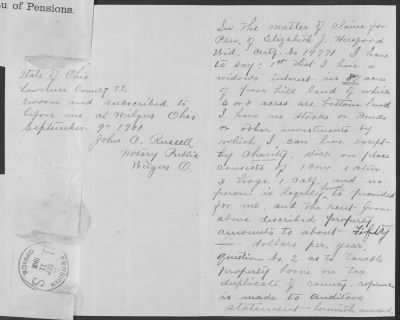 u of Pensions.
State of Ohio
Lawrence County SS
Sworn and subscribed to
before me at Wilgus Ohio
September 9th 1901
John C. Russell
Notary Public
Wilgus O.
PENSION
OFFICE
U S
SEP
11
In the matter of claim for
Pen. of Elizabeth J. Hereford
Wid. Certf. No 19771 I have
to say: 1st that I have a
widows interest in 8 acres
of poor hill land of which
6 or 8 acres are bottom land
I have no stocks or Bonds
or other investments by
which I can live except
by Charity. Stock on place
consists of 1 cow 1 steer
3 hogs, 1 calf, and no
person is legally to provide
for me, and the rent from
above described property
amounts to about Fifty
dollars per year.
Question No 2 as to taxable
property borne on tax
duplicate of county reference
is made to Auditors
statement herewith annexed